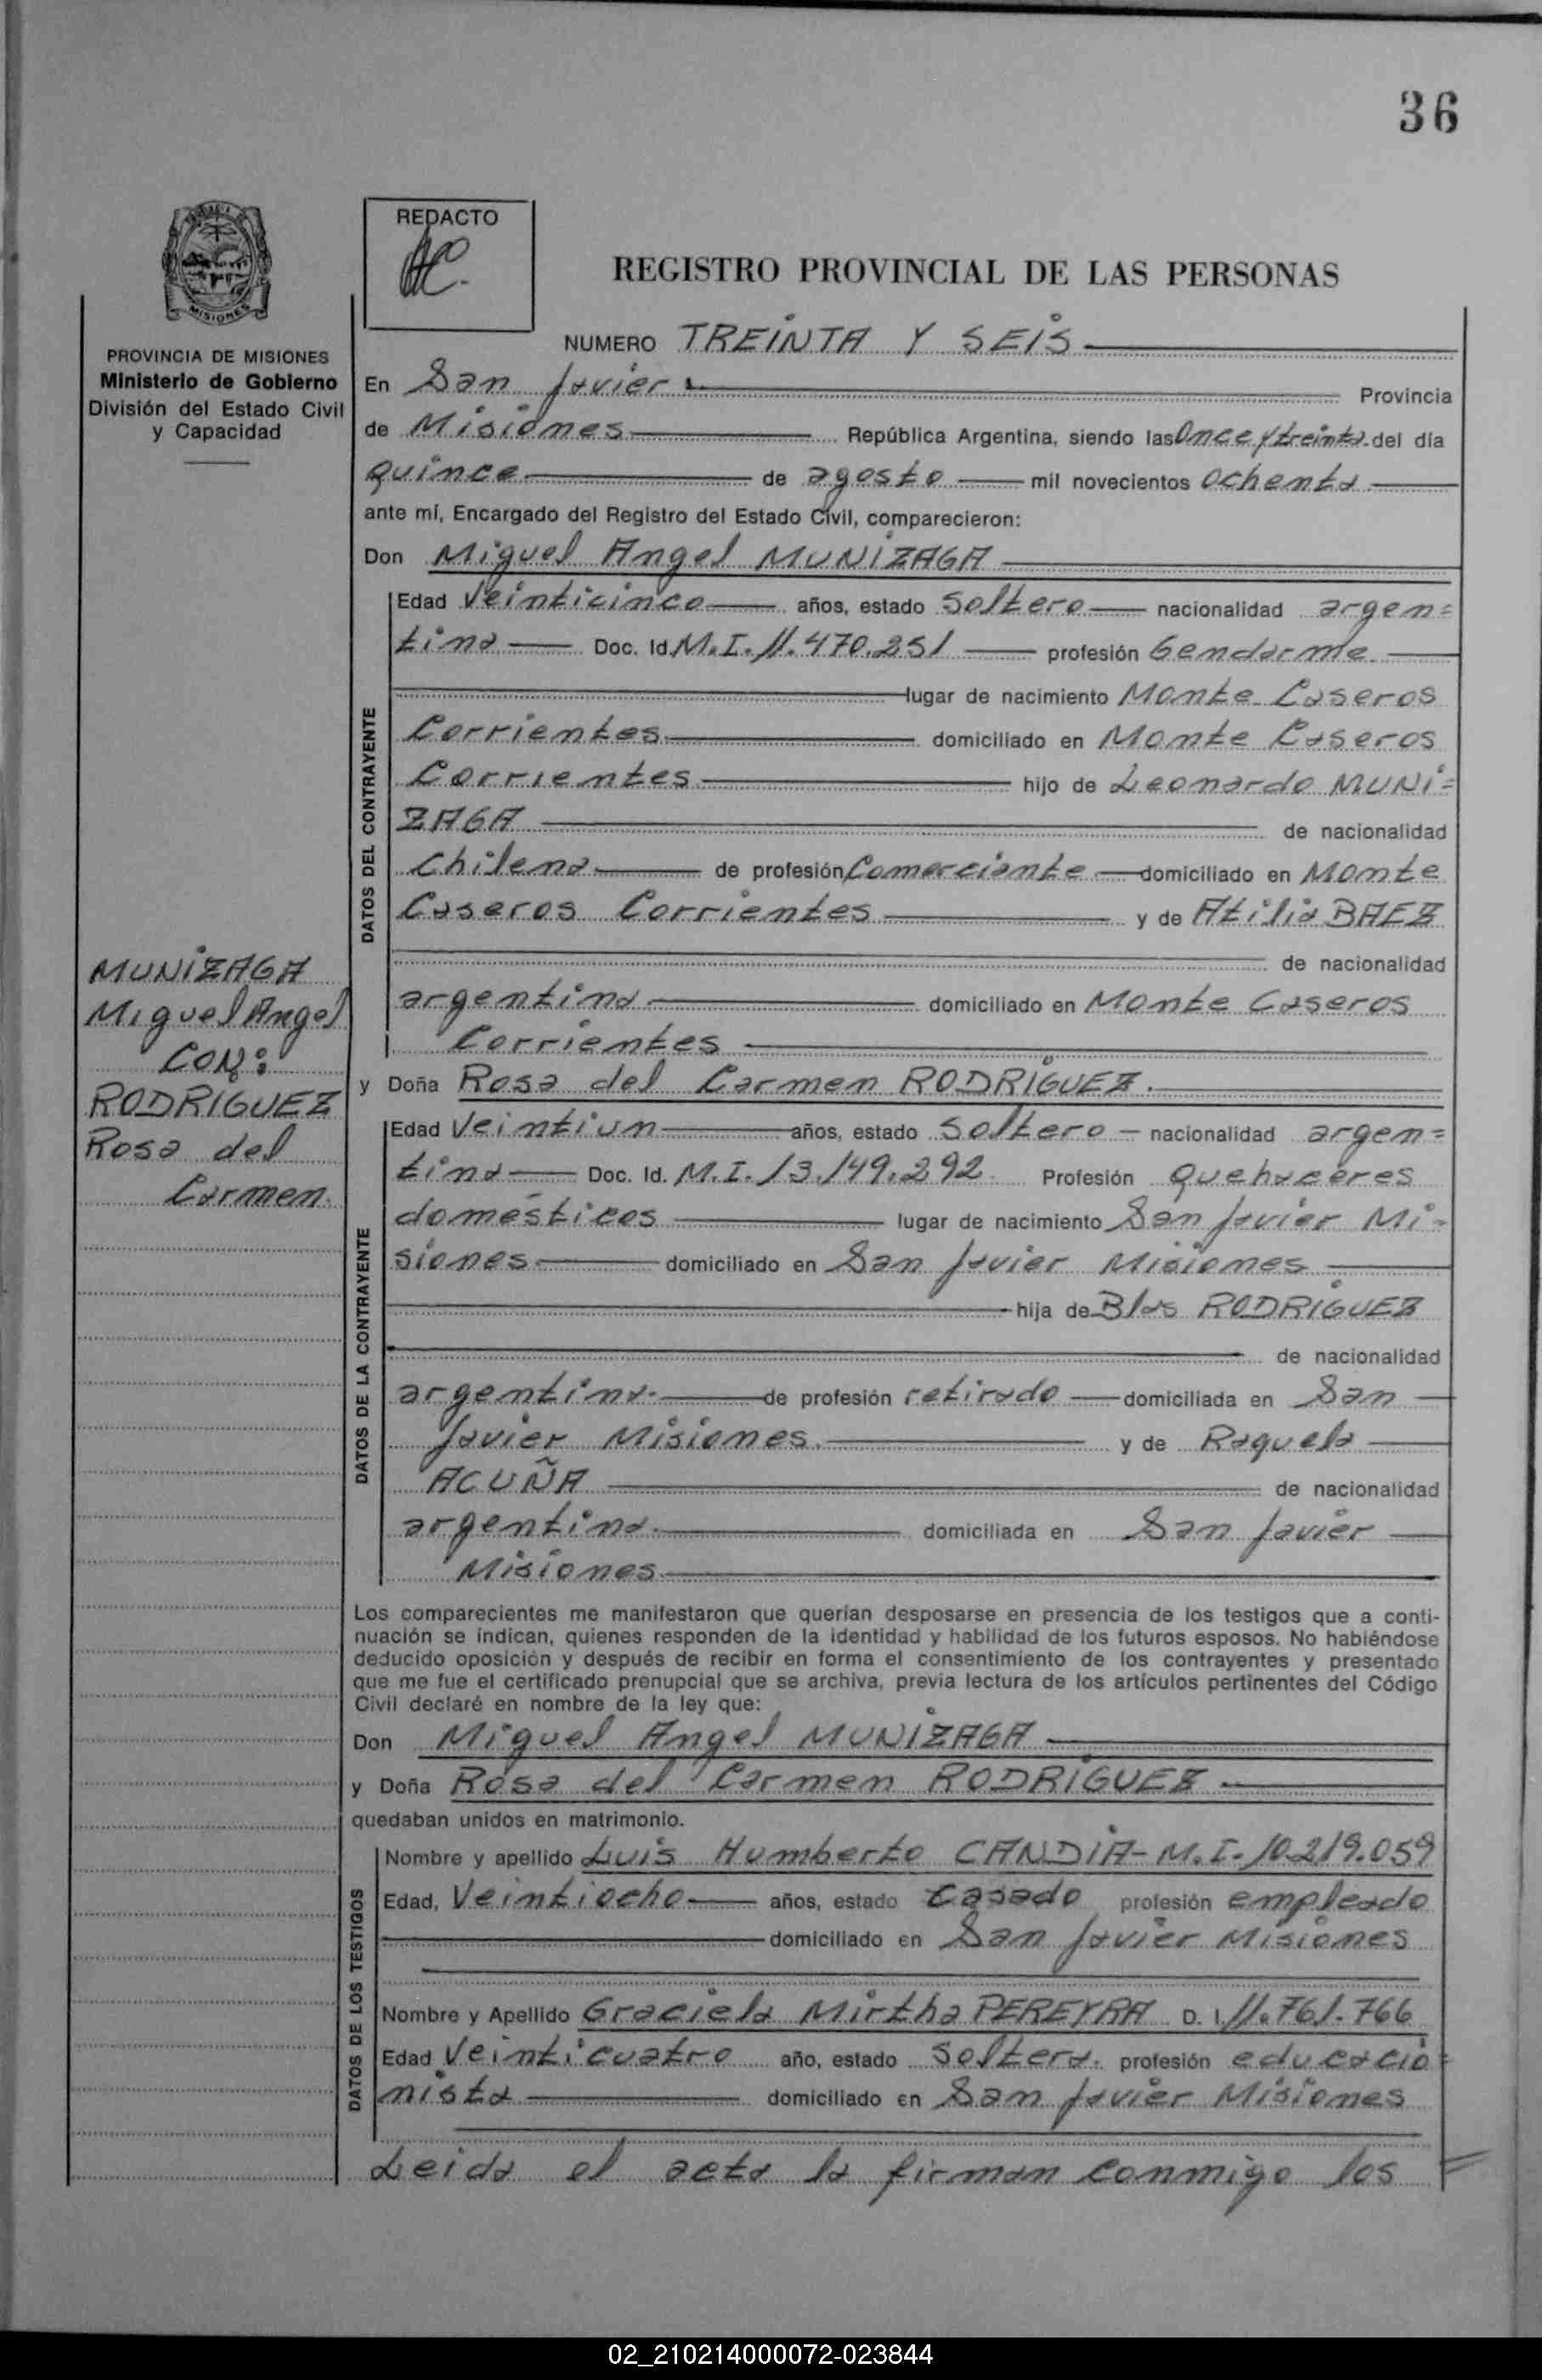 36
REDACTO
REGISTRO PROVINCIAL DE LAS PERSONAS
MISIONES
PROVINCIA DE MISIONES
Ministerio de Gobierno
División del Estado Civil
y Capacidad
NUMERO TREINTA Y SEIS
En San Javier Provincia
de Misiones República Argentina, siendo las Once y treinta del día
quince de agosto mil novecientos ochenta
ante mí, Encargado del Registro del Estado Civil, comparecieron:
Don Miguel Angel MUNIZAGA
Edad Veinticinco años, estado Soltero nacionalidad argen=
tina Doc. Id. M.I. 11.470.251 profesión Gendarme
lugar de nacimiento Monte Caseros
Corrientes domiciliado en Monte Caseros
Corrientes hijo de Leonardo MUNI=
ZAGA de nacionalidad
Chilena de profesión Comerciante domiciliado en Monte
Caseros Corrientes y de Atilia BAEZ
de nacionalidad
argentina domiciliado en Monte Caseros
Corrientes
DATOS DEL CONTRAYENTE
MUNIZAGA
Miguel Angel
CON:
RODRIGUEZ
Rosa del
Carmen
y Doña Rosa del Carmen RODRIGUEZ.
Edad Veintiun años, estado Soltero nacionalidad argen=
tina Doc. Id. M.I. 13.149.292 Profesión Quehaceres
domésticos lugar de nacimiento San Javier Mi=
siones domiciliado en San Javier Misiones
hija de Blas RODRIGUEZ
de nacionalidad
argentina. de profesión retirado domiciliada en San
Javier Misiones. y de Raquela
ACUÑA de nacionalidad
argentina. domiciliada en San Javier
Misiones
DATOS DE LA CONTRAYENTE
Los comparecientes me manifestaron que querían desposarse en presencia de los testigos que a conti-
nuación se indican, quienes responden de la identidad y habilidad de los futuros esposos. No habiéndose
deducido oposición y después de recibir en forma el consentimiento de los contrayentes y presentado
que me fue el certificado prenupcial que se archiva, previa lectura de los artículos pertinentes del Código
Civil declaré en nombre de la ley que:
Don Miguel Angel MUNIZAGA
y Doña Rosa del Carmen RODRIGUEZ
quedaban unidos en matrimonio.
Nombre y apellido Luis Humberto CANDIA- M.I. 10.219.059
Edad, Veintiocho años, estado Casado profesión empleado
domiciliado en San Javier Misiones
Nombre y Apellido Graciela Mirtha PEREYRA D. I. 11.761.766
Edad Veinticuatro año, estado Soltera. profesión educacio=
nista domiciliado en San Javier Misiones
DATOS DE LOS TESTIGOS
Leida el acta la firman conmigo los =
02_210214000072-023844